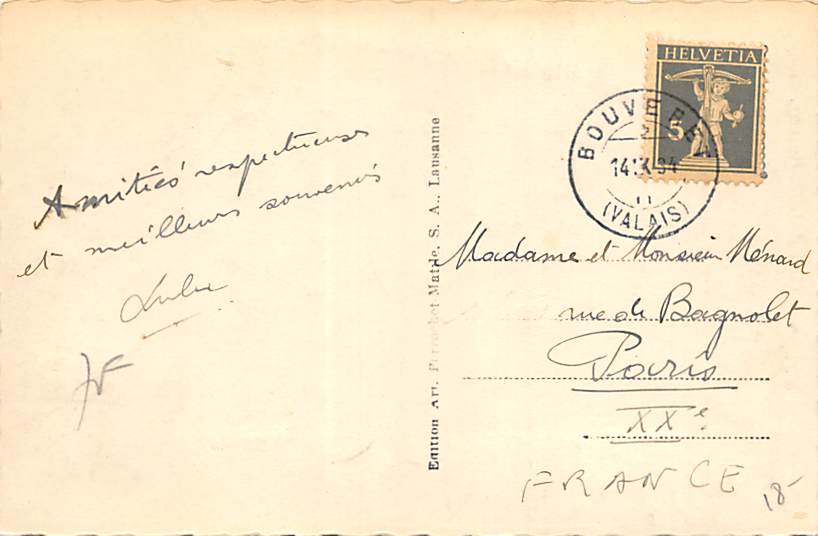 Amitiés respectueuses
et meilleurs souvenirs
Edition Art. Perrochet-Matile, S. A., Lausanne
HELVETIA
5
BOUVERET
(VALAIS)
Madame et Monsieur Ménard
rue de Bagnolet
Paris
XXe
FRANCE
18-